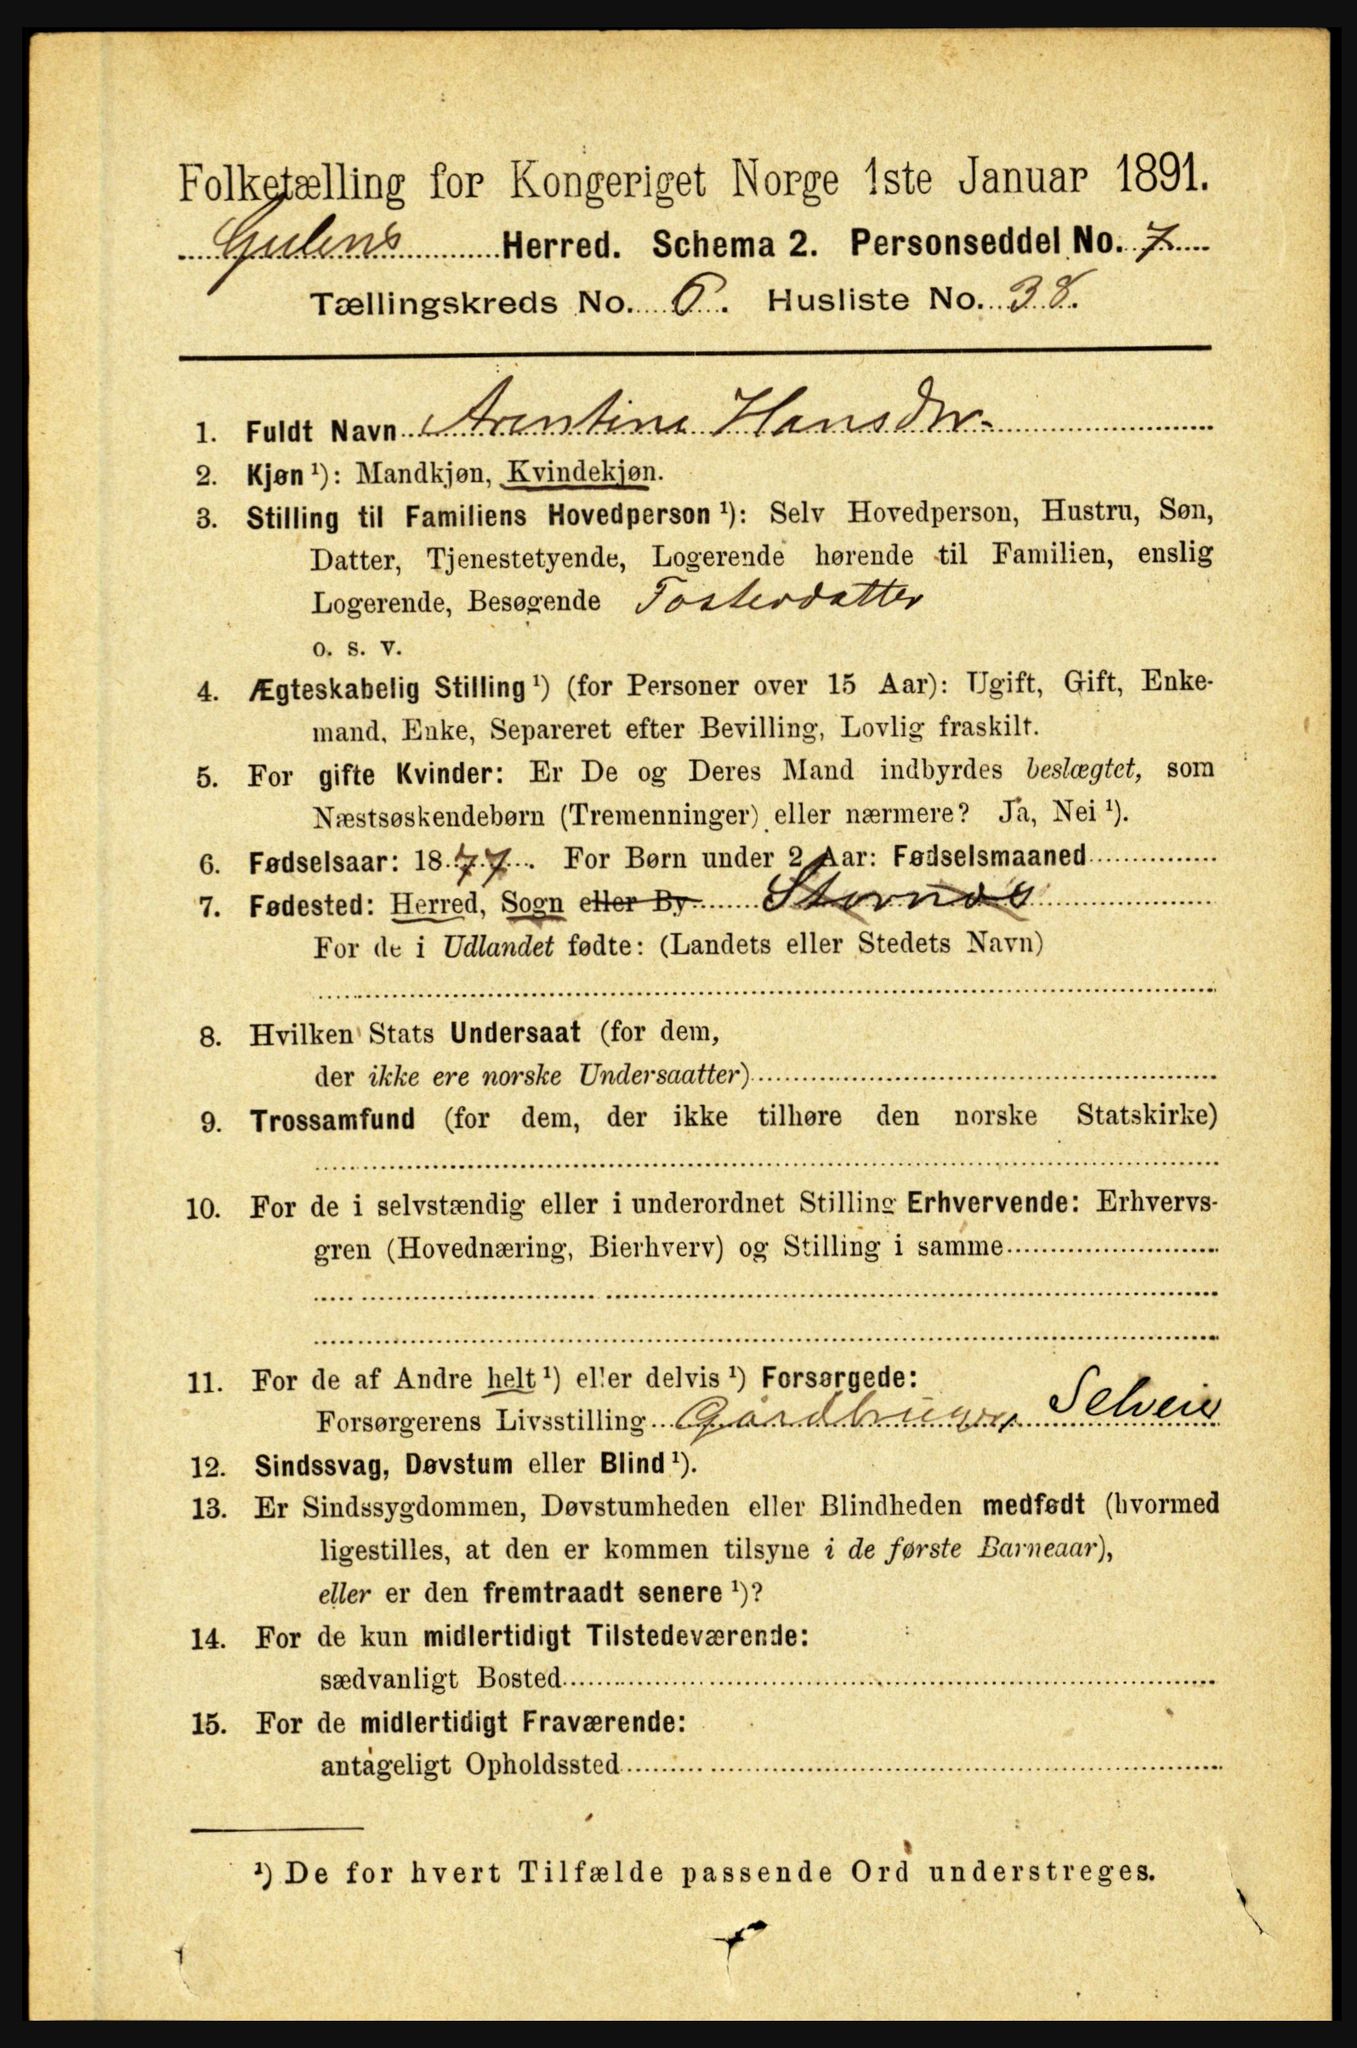 Folketælling for Kongeriget Norge 1ste Januar 1891.
Gulens Herred. Schema 2. Personseddel No. 7
Tællingskreds No. 6. Husliste No. 38.
1. Fuldt Navn Arentine Hansdtr.
2. Kjøn ¹): Mandkjøn, Kvindekjøn.
3. Stilling til Familiens Hovedperson ¹): Selv Hovedperson, Hustru, Søn,
Datter, Tjenestetyende, Logerende hørende til Familien, enslig
Logerende, Besøgende Fosterdatter
o. s. v.
4. Ægteskabelig Stilling ¹) (for Personer over 15 Aar): Ugift, Gift, Enke-
mand, Enke, Separeret efter Bevilling, Lovlig fraskilt.
5. For gifte Kvinder: Er De og Deres Mand indbyrdes beslægtet, som
Næstsøskendebørn (Tremenninger) eller nærmere? Ja, Nei ¹).
6. Fødselsaar: 1877. For Børn under 2 Aar: Fødselsmaaned
7. Fødested: Herred, Sogn eller By
For de i Udlandet fødte: (Landets eller Stedets Navn)
8. Hvilken Stats Undersaat (for dem,
der ikke ere norske Undersaatter)
9. Trossamfund (for dem, der ikke tilhøre den norske Statskirke)
10. For de i selvstændig eller i underordnet Stilling Erhvervende: Erhvervs-
gren (Hovednæring, Bierhverv) og Stilling i samme
11. For de af Andre helt ¹) eller delvis ¹) Forsørgede:
Forsørgerens Livsstilling Gardbruger, Selveier
12. Sindssvag, Døvstum eller Blind ¹).
13. Er Sindssygdommen, Døvstumheden eller Blindheden medfødt (hvormed
ligestilles, at den er kommen tilsyne i de første Barneaar),
eller er den fremtraadt senere ¹)?
14. For de kun midlertidigt Tilstedeværende:
sædvanligt Bosted
15. For de midlertidigt Fraværende:
antageligt Opholdssted
¹) De for hvert Tilfælde passende Ord understreges.